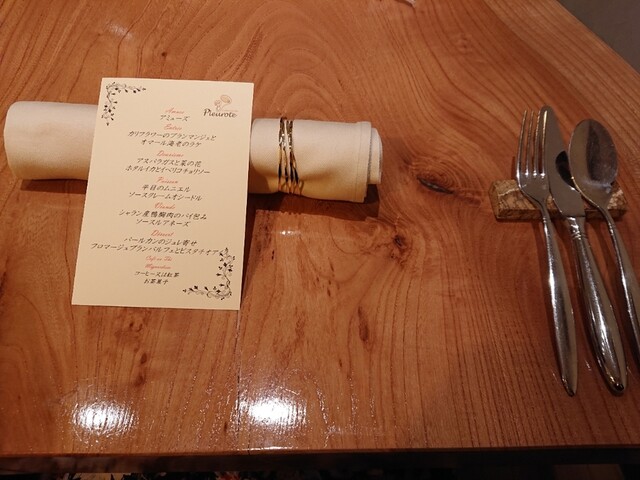 Pleurote
Amuse
アミューズ
Entrée
カリフラワーのブランマンジェと
オマール海老のラケ
Deuxième
アスパラガスと菜の花
ホタルイカとイベリコチョリソー
Poisson
平目のムニエル
ソースクレームオシードル
Viande
シャラン産鴨胸肉のパイ包み
ソースルアネーズ
Dessert
パールカンのジュレ寄せ
フロマージュブランパルフェとピスタチオアイス
Café ou Thé
Mignardises
コーヒー又は紅茶
お菓子